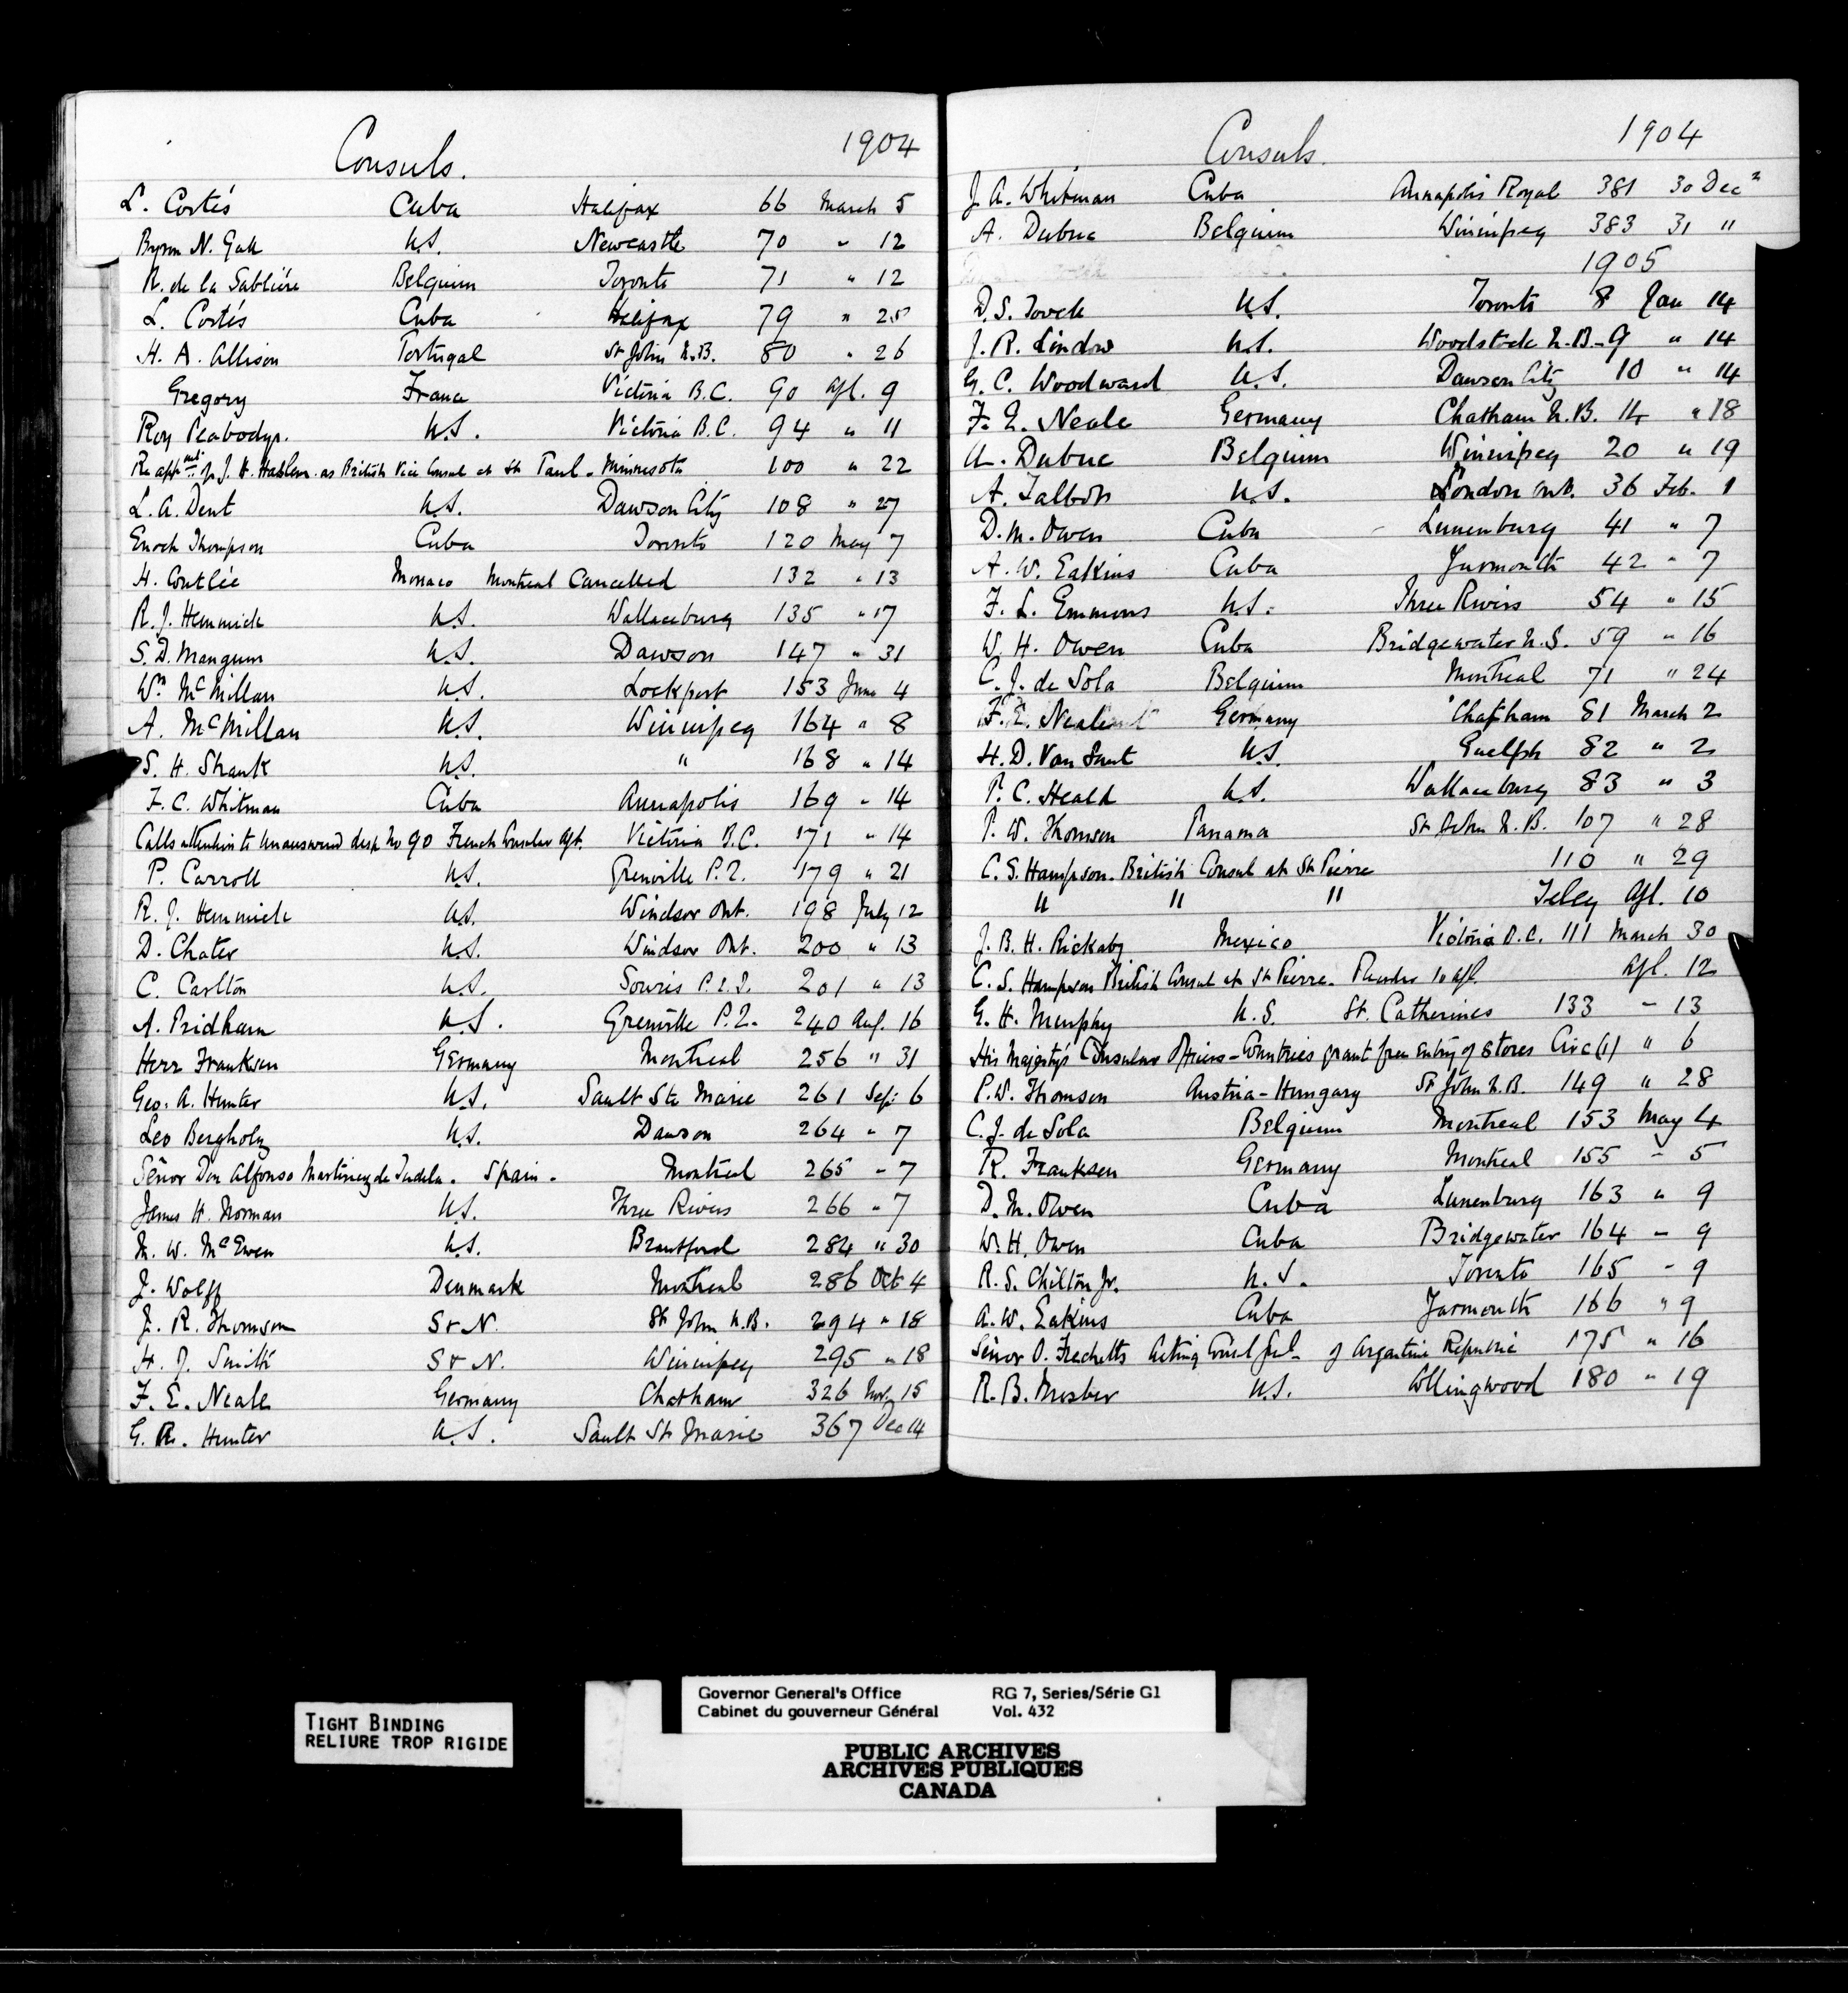 Consuls. 1904
L. Cortés Cuba Halifax 66 March 5
Byron N. Gak U.S. Newcastle 70 " 12
R. de la Sablière Belgium Toronto 71 " 12
L. Cortés Cuba Halifax 79 " 25
H. A. Allison Portugal St John N.B. 80 " 26
Gregory France Victoria B.C. 90 Apl. 9
Roy Peabody U.S. Victoria B.C. 94 " 11
Re appmt of J. H. as British Vice Consul at St Paul - Minnesota 100 " 22
L. A. Dent U.S. Dawson City 108 " 27
Enoch Thompson Cuba Toronto 120 May 7
H. Coutlée Monaco Montreal Cancelled 132 " 13
R. J. Hemmick U.S. Wallaceburg 135 " 17
S. D. Mangum U.S. Dawson 147 " 31
Wm McMillan U.S. Lockport 153 June 4
A. McMillan U.S. Winnipeg 164 " 8
S. H. Shank U.S. " 168 " 14
F. C. Whitman Cuba Annapolis 169 " 14
Calls attention to unanswered desp. No 90 French Consular Agt. Victoria B.C. 171 " 14
P. Carroll U.S. Grenville P.Q. 179 " 21
R. J. Hemmick U.S. Windsor Ont. 198 July 12
D. Chater U.S. Windsor Ont. 200 " 13
C. Carlton U.S. Souris P.E.I. 201 " 13
A. Pridham U.S. Grenville P.Q. 240 Aug. 16
Herr Franksen Germany Montreal 256 " 31
Geo. A. Hunter U.S. Sault Ste Marie 261 Sep: 6
Leo Bergholz U.S. Dawson 264 " 7
Señor Don Alfonso Martinez de Tudela. Spain. Montreal 265 " 7
James H. Norman U.S. Three Rivers 266 " 7
M. W. McEwen U.S. Brantford 284 " 30
J. Wolff Denmark Montreal 286 Oct 4
J. R. Thomson S & N. St John N.B. 294 " 18
H. J. Smith S & N. Winnipeg 295 " 18
F. E. Neale Germany Chatham 326 Nov. 15
G. A. Hunter U.S. Sault St Marie 367 Dec 14
Consuls. 1904
J. A. Whitman Cuba Annapolis Royal 381 30 Decr
A. Dubuc Belgium Winnipeg 383 31 "
1905
D. S. U.S. Toronto 8 Jan 14
J. R. Lindow U.S. Woodstock N.B. - 9 " 14
G. C. Woodward U.S. Dawson City 10 " 14
F. E. Neale Germany Chatham N.B. 14 " 18
A. Dubuc Belgium Winnipeg 20 " 19
A. Talbot U.S. London Ont. 36 Feb. 1
D. M. Owen Cuba Lunenburg 41 " 7
A. W. Eakins Cuba Yarmouth 42 " 7
F. L. Emmons U.S. Three Rivers 54 " 15
W. H. Owen Cuba Bridgewater N.S. 59 " 16
C. J. de Sola Belgium Montreal 71 " 24
F. E. Neale Germany Chatham 81 March 2
H. D. Van Sant U.S. Guelph 82 " 2
P. C. Heald U.S. Wallaceburg 83 " 3
P. W. Thomson Panama St John N.B. 107 " 28
C. S. Hampson. British Consul at St Pierre 110 " 29
" " " Teleg Apl. 10
J. B. H. Rickaby Mexico Victoria B.C. 111 March 30
C. S. Hampson British Consul at St Pierre. 10 Apl. Apl. 12
G. H. Murphy U.S. St. Catherines 133 - 13
His Majesty's Consular Officers - Countries grant free entry of stores Circ (1) " 6
P. W. Thomson Austria-Hungary St John N.B. 149 " 28
C. J. de Sola Belgium Montreal 153 May 4
R. Franksen Germany Montreal 155 - 5
D. M. Owen Cuba Lunenburg 163 " 9
W. H. Owen Cuba Bridgewater 164 - 9
R. S. Chilton Jr. U.S. Toronto 165 - 9
A. W. Eakins Cuba Yarmouth 166 " 9
Señor O. Frechette Acting Consul Genl - of Argentine Republic 175 " 16
R. B. Mosher U.S. Collingwood 180 " 19
TIGHT BINDING
RELIURE TROP RIGIDE
Governor General's Office RG 7, Series/Série G1
Cabinet du gouverneur Général Vol. 432
PUBLIC ARCHIVES
ARCHIVES PUBLIQUES
CANADA